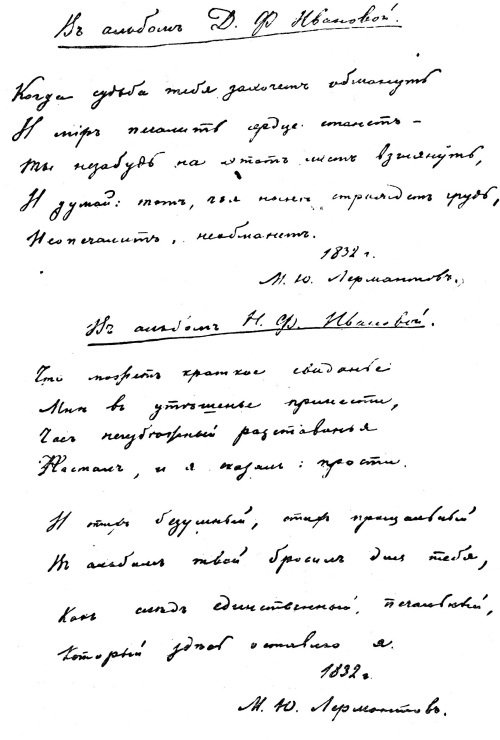 Въ альбомъ Д. Ф Ивановой.
Когда судьба тебя захочетъ обмануть
И міръ печалить сердце станетъ –
Ты незабудь на этотъ листъ взглянуть,
И думай: тотъ, чья нынѣ страждетъ грудь,
Неопечалитъ, необманетъ.
1832 г.
М. Ю. Лермантовъ.
Въ альбомъ Н. Ф. Ивановой.
Что можетъ краткое свиданье
Мнѣ въ утѣшенье принести,
Часъ неизбѣжный разставанья
Насталъ, и я сказалъ: прости.
И стихъ безумный, стихъ прощальный
Въ альбомъ твой бросилъ для тебя,
Какъ слѣдъ единственный, печальный,
Который здѣсь оставлю я.
1832 г.
М. Ю. Лермонтовъ.